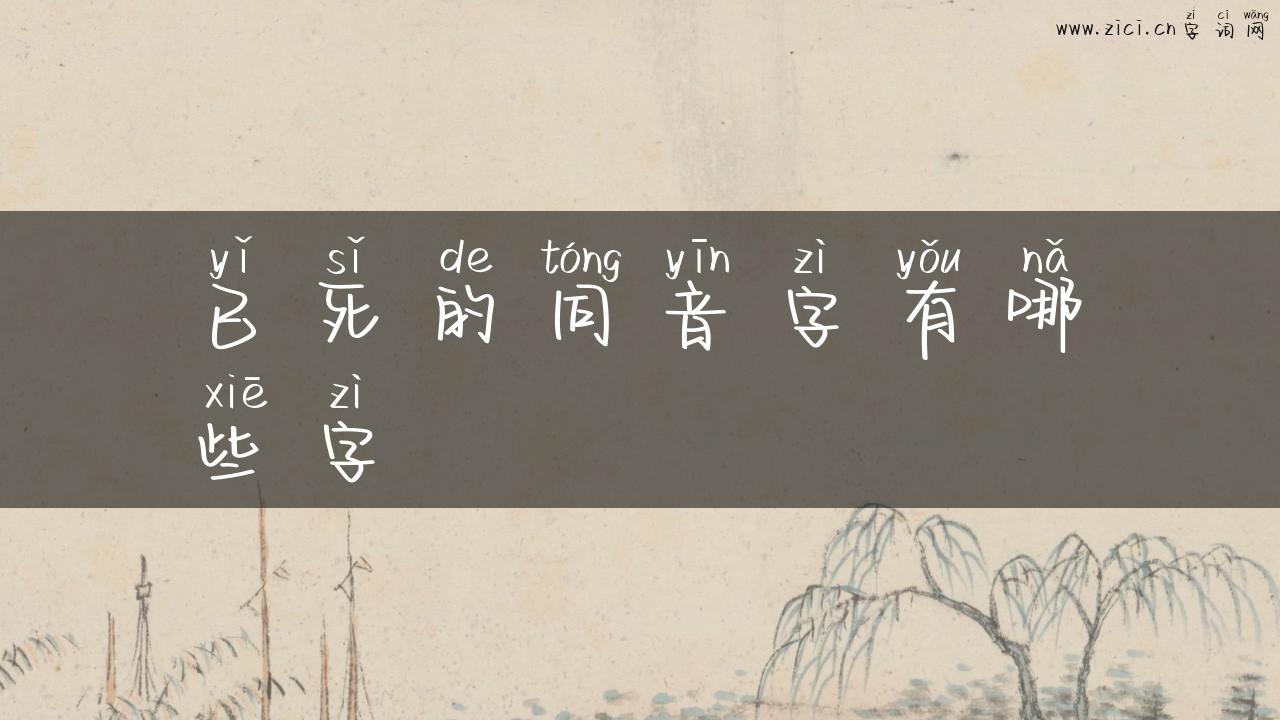 zì cí wǎng
www.zici.cn 字 词 网
yǐ sǐ de tóng yīn zì yǒu nǎ
已 死 的 同 音 字 有 哪
xiē zì
些 字